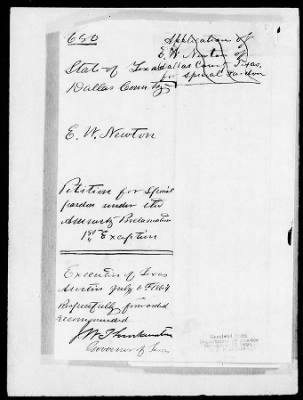 650
Application of
E. W. Newton of
Dallas County Texas,
for special Pardon
State of Texas
Dallas County
E. W. Newton
Petition for Special
pardon under the
Amnesty Proclamation
1st Exception
Executive of Texas
Austin July
Respectfully forwarded
recommended
Governor of Texas